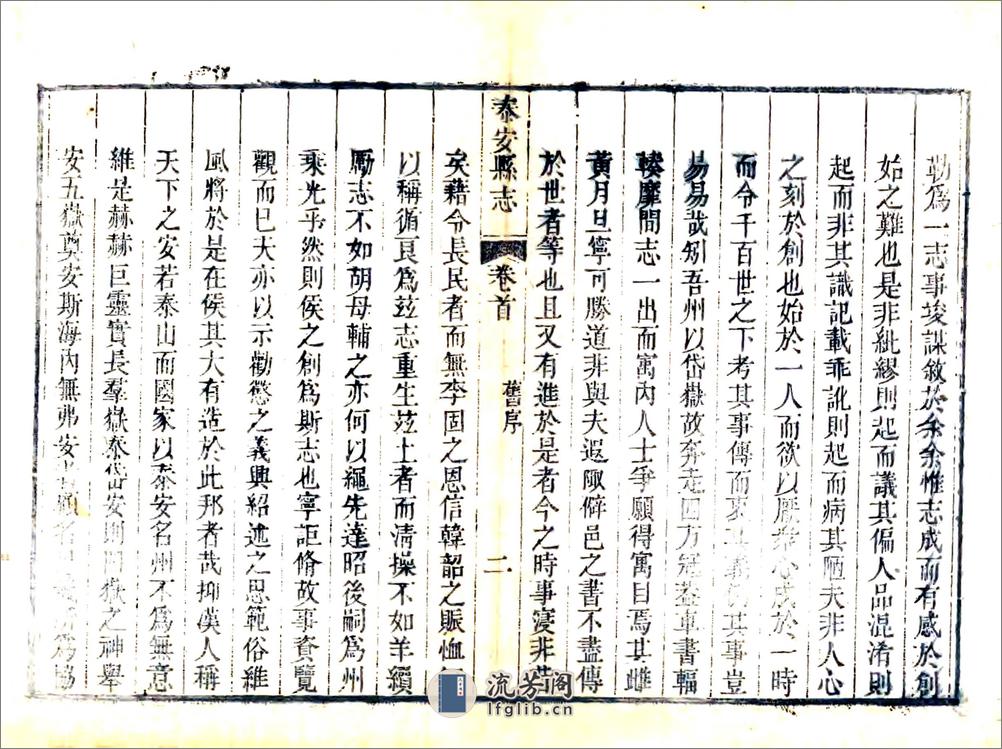 勒爲一志事竣謀敘於余余惟志成而有感於創
始之難也是非紕繆則起而議其偏人品混淆則
起而非其識記載乖訛則起而病其陋夫非人心
之刻於創也始於一人而欲以厭衆心成於一時
而令千百世之下考其事傳而其事豈
易易哉矧吾州以岱嶽故奔走四方冠蓋車書輻
輳靡間志一出而寓內人士爭願得寓目焉其雌
黃月旦寧可勝道非與夫遐陬僻邑之書不盡傳
於世者等也且又有進於是者今之時事寖非
泰安縣志
卷首
舊序
二
矣藉令長民者而無李固之恩信韓韶之賑恤
以稱循良爲茲志重生茲土者而清操不如羊續
勵志不如胡母輔之亦何以繩先達昭後嗣爲州
乘光乎然則侯之創爲斯志也寧詎脩故事資覽
觀而已大亦以示勸懲之義興紹述之思範俗維
風將於是在侯其大有造於此邦者哉抑漢人稱
天下之安若泰山而國家以泰安名州不爲無意
維是赫赫巨靈實長羣嶽泰岱安則嶽之神舉
安五嶽奠安斯海內無弗安名爲協
流芳阁
lfglib.cn